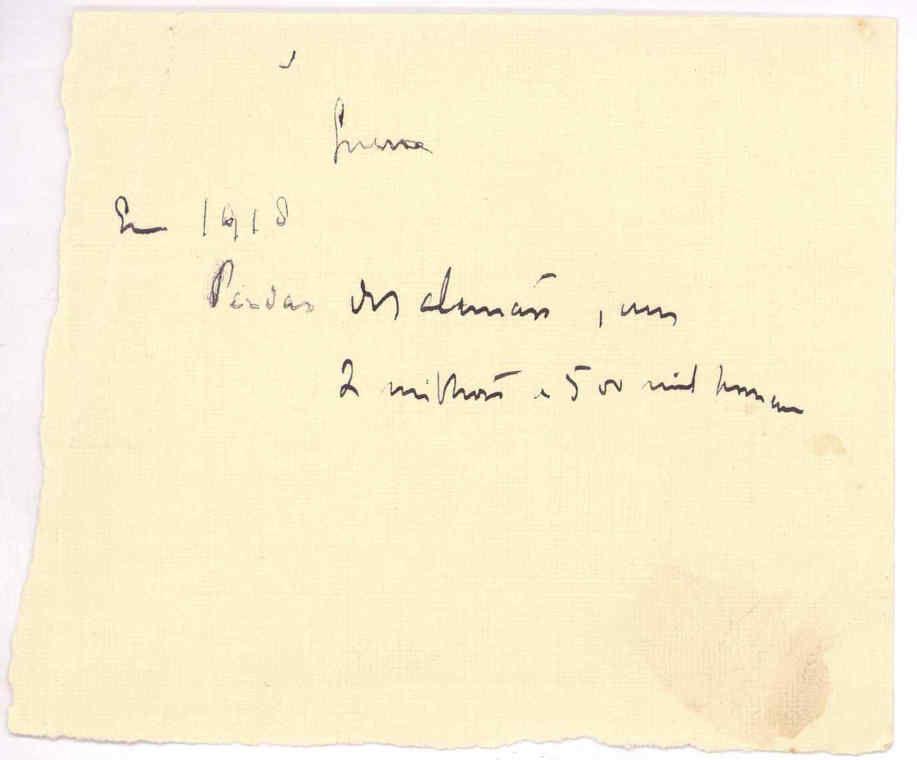 Guerra
Em 1918
Perdas dos alemães, uns
2 milhões e 500 mil homens